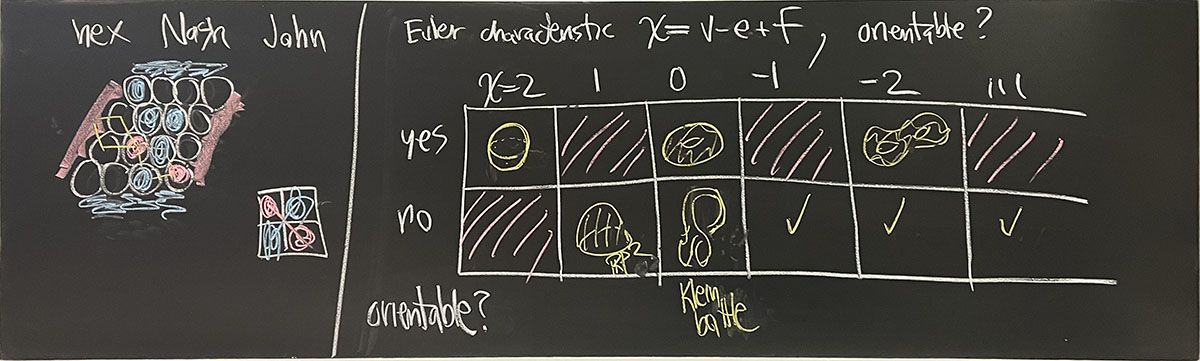 hex Nash John
Euler characteristic χ = v - e + f, orientable?
χ=2 1 0 -1 -2 ...
yes
no ✓ ✓ ✓
RP2
orientable?
Klein
bottle